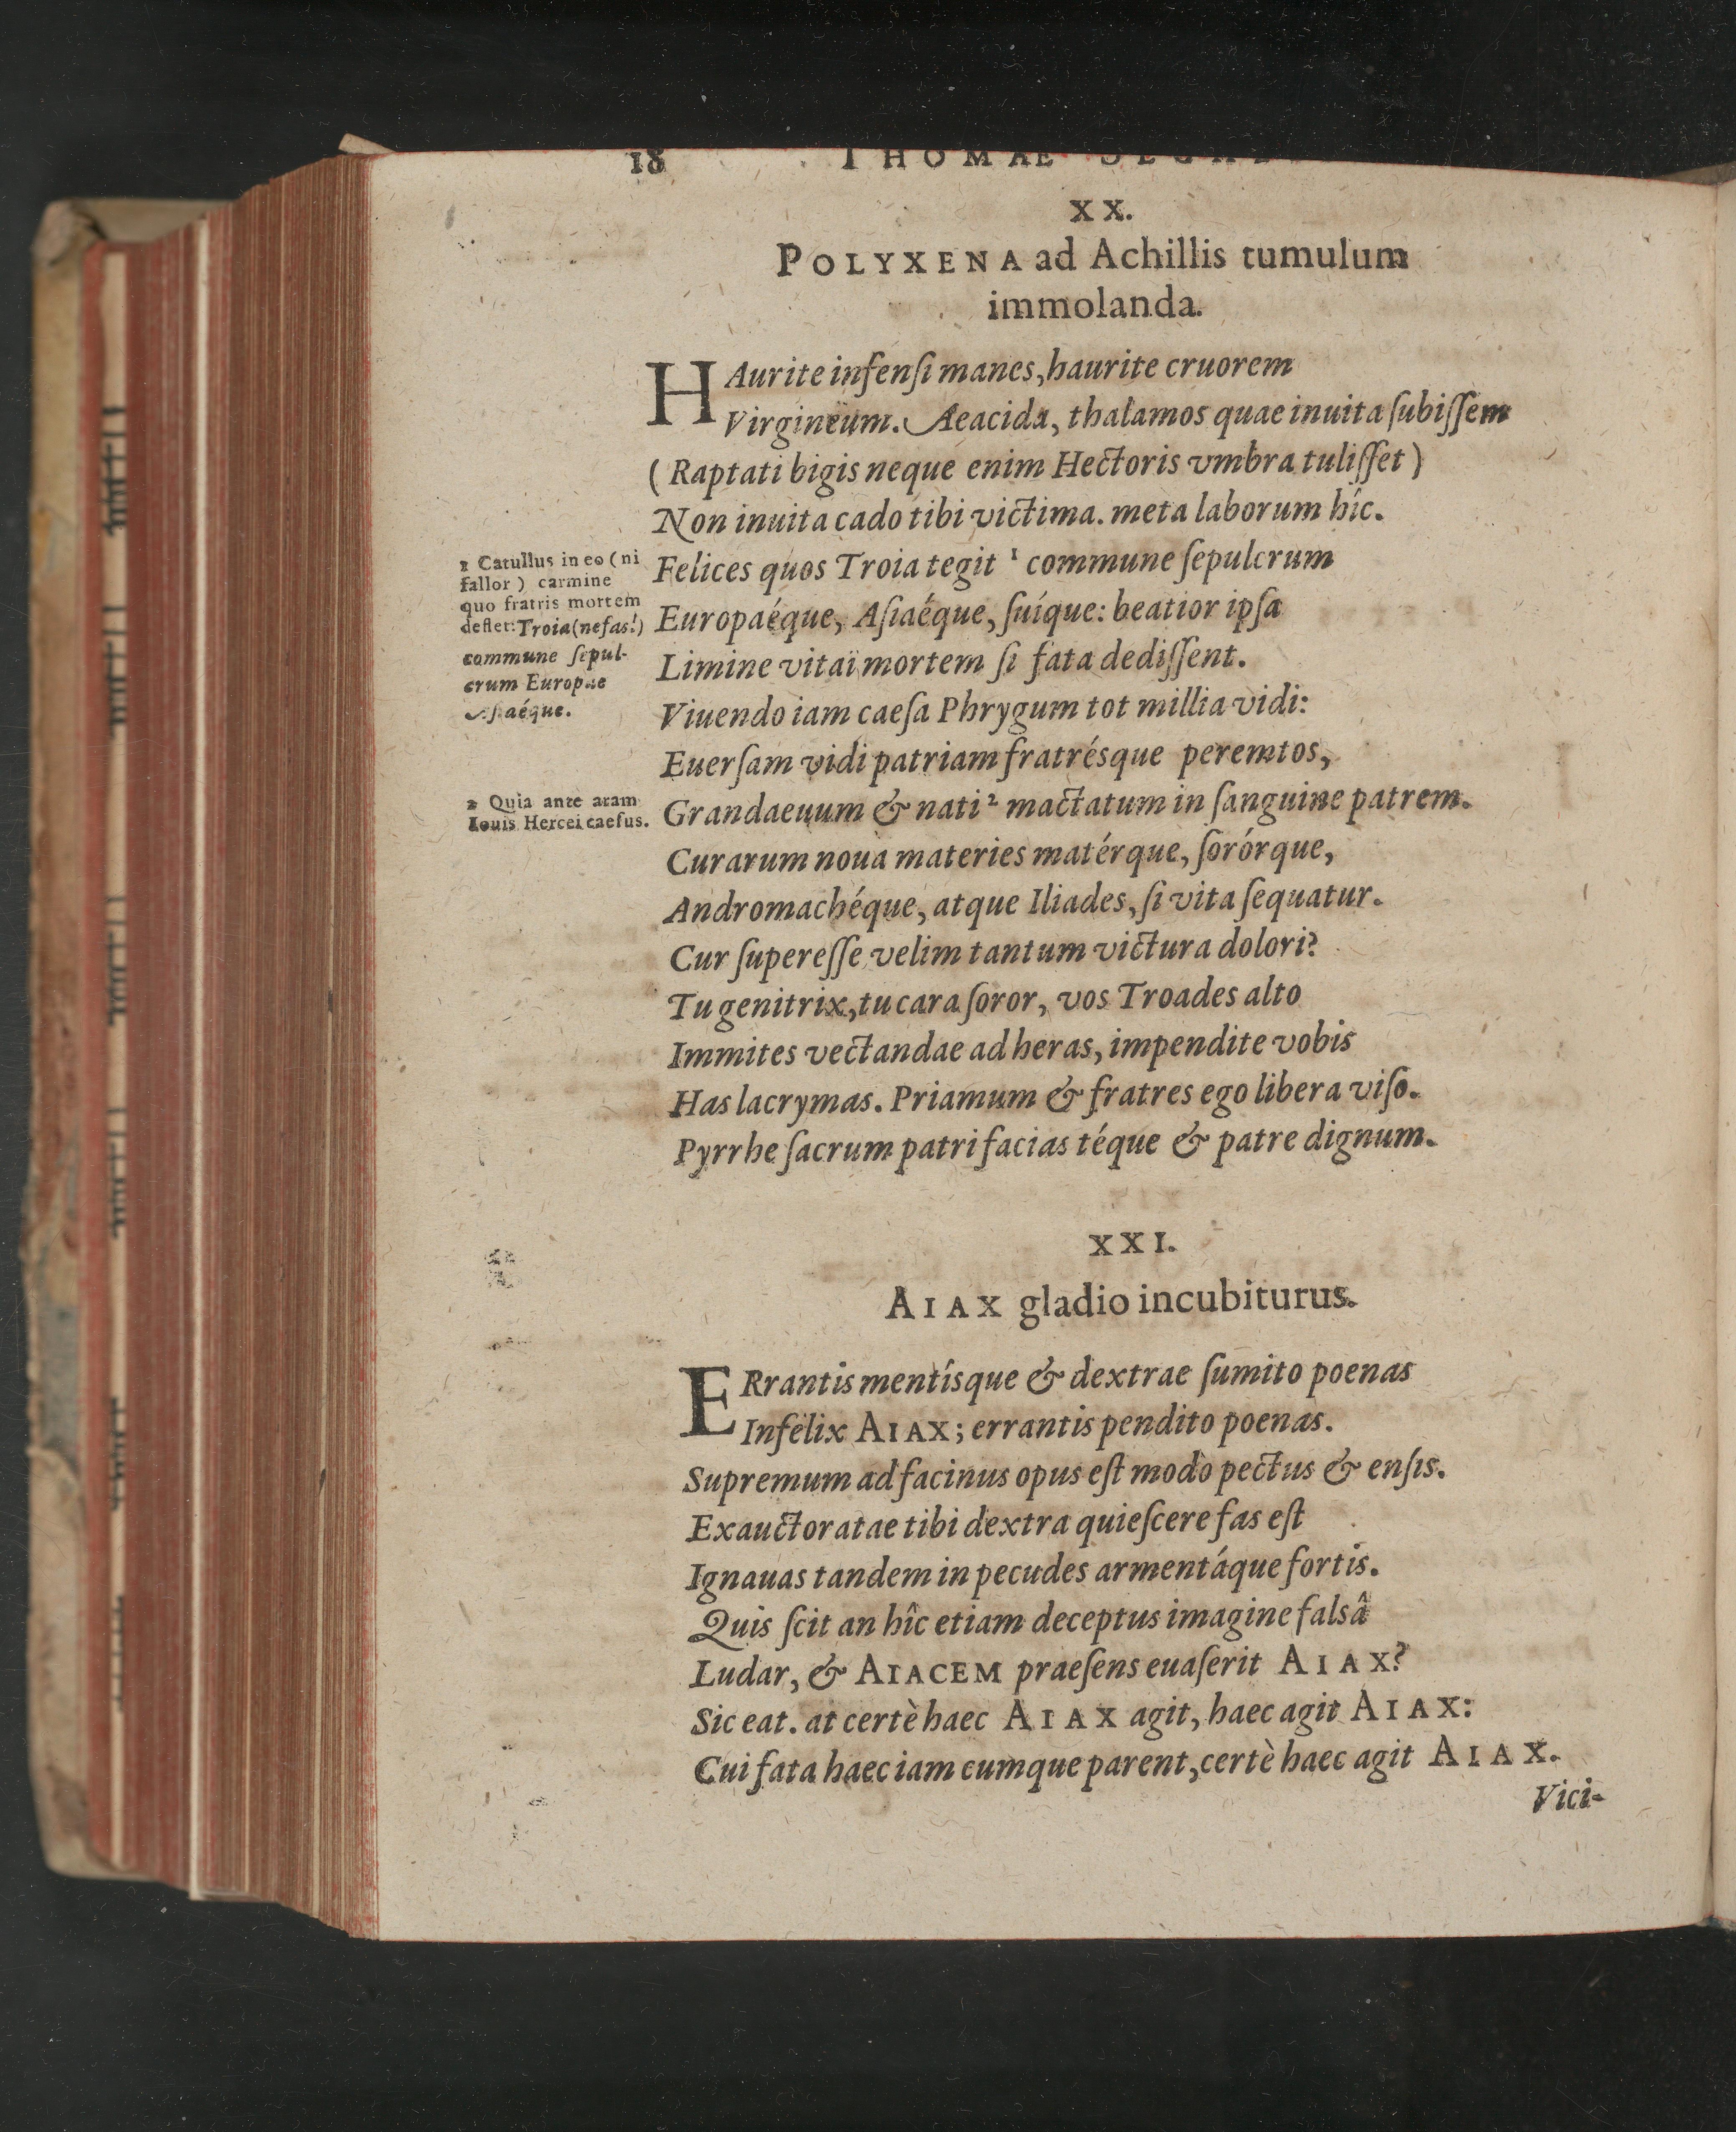 18 THOMAE
XX.
POLYXENA ad Achillis tumulum
immolanda.
HAurite infenſi manes, haurite cruorem
Virgineum. Aeacida, thalamos quae inuita ſubiſſem
(Raptati bigis neque enim Hectoris vmbra tuliſſet)
Non inuita cado tibi victima. meta laborum hîc.
Felices quos Troia tegit ¹ commune ſepulcrum
Europaéque, Aſiaéque, ſuíque: beatior ipſa
Limine vitaï mortem ſi fata dediſſent.
Viuendo iam caeſa Phrygum tot millia vidi:
Euerſam vidi patriam fratrésque peremtos,
Grandaeuum & nati ² mactatum in ſanguine patrem.
Curarum noua materies matérque, ſorórque,
Andromachéque, atque Iliades, ſi vita ſequatur.
Cur ſupereſſe velim tantum victura dolori?
Tu genitrix, tu cara ſoror, vos Troades alto
Immites vectandae ad heras, impendite vobis
Has lacrymas. Priamum & fratres ego libera viſo.
Pyrrhe ſacrum patri facias téque & patre dignum.
1 Catullus in eo (ni
fallor) carmine
quo fratris mortem
deflet: Troia (nefas!)
commune ſepul-
crum Europae
Aſiaéque.
2 Quia ante aram
Iouis Hercei caeſus.
XXI.
AIAX gladio incubiturus.
ERrantis mentísque & dextrae ſumito poenas
Infelix AIAX; errantis pendito poenas.
Supremum ad facinus opus eſt modo pectus & enſis.
Exauctoratae tibi dextra quieſcere fas eſt
Ignauas tandem in pecudes armentáque fortis.
Quis ſcit an hîc etiam deceptus imagine falsâ
Ludar, & AIACEM praeſens euaſerit AIAX?
Sic eat. at certè haec AIAX agit, haec agit AIAX:
Cui fata haec iam cumque parent, certè haec agit AIAX.
Vici-